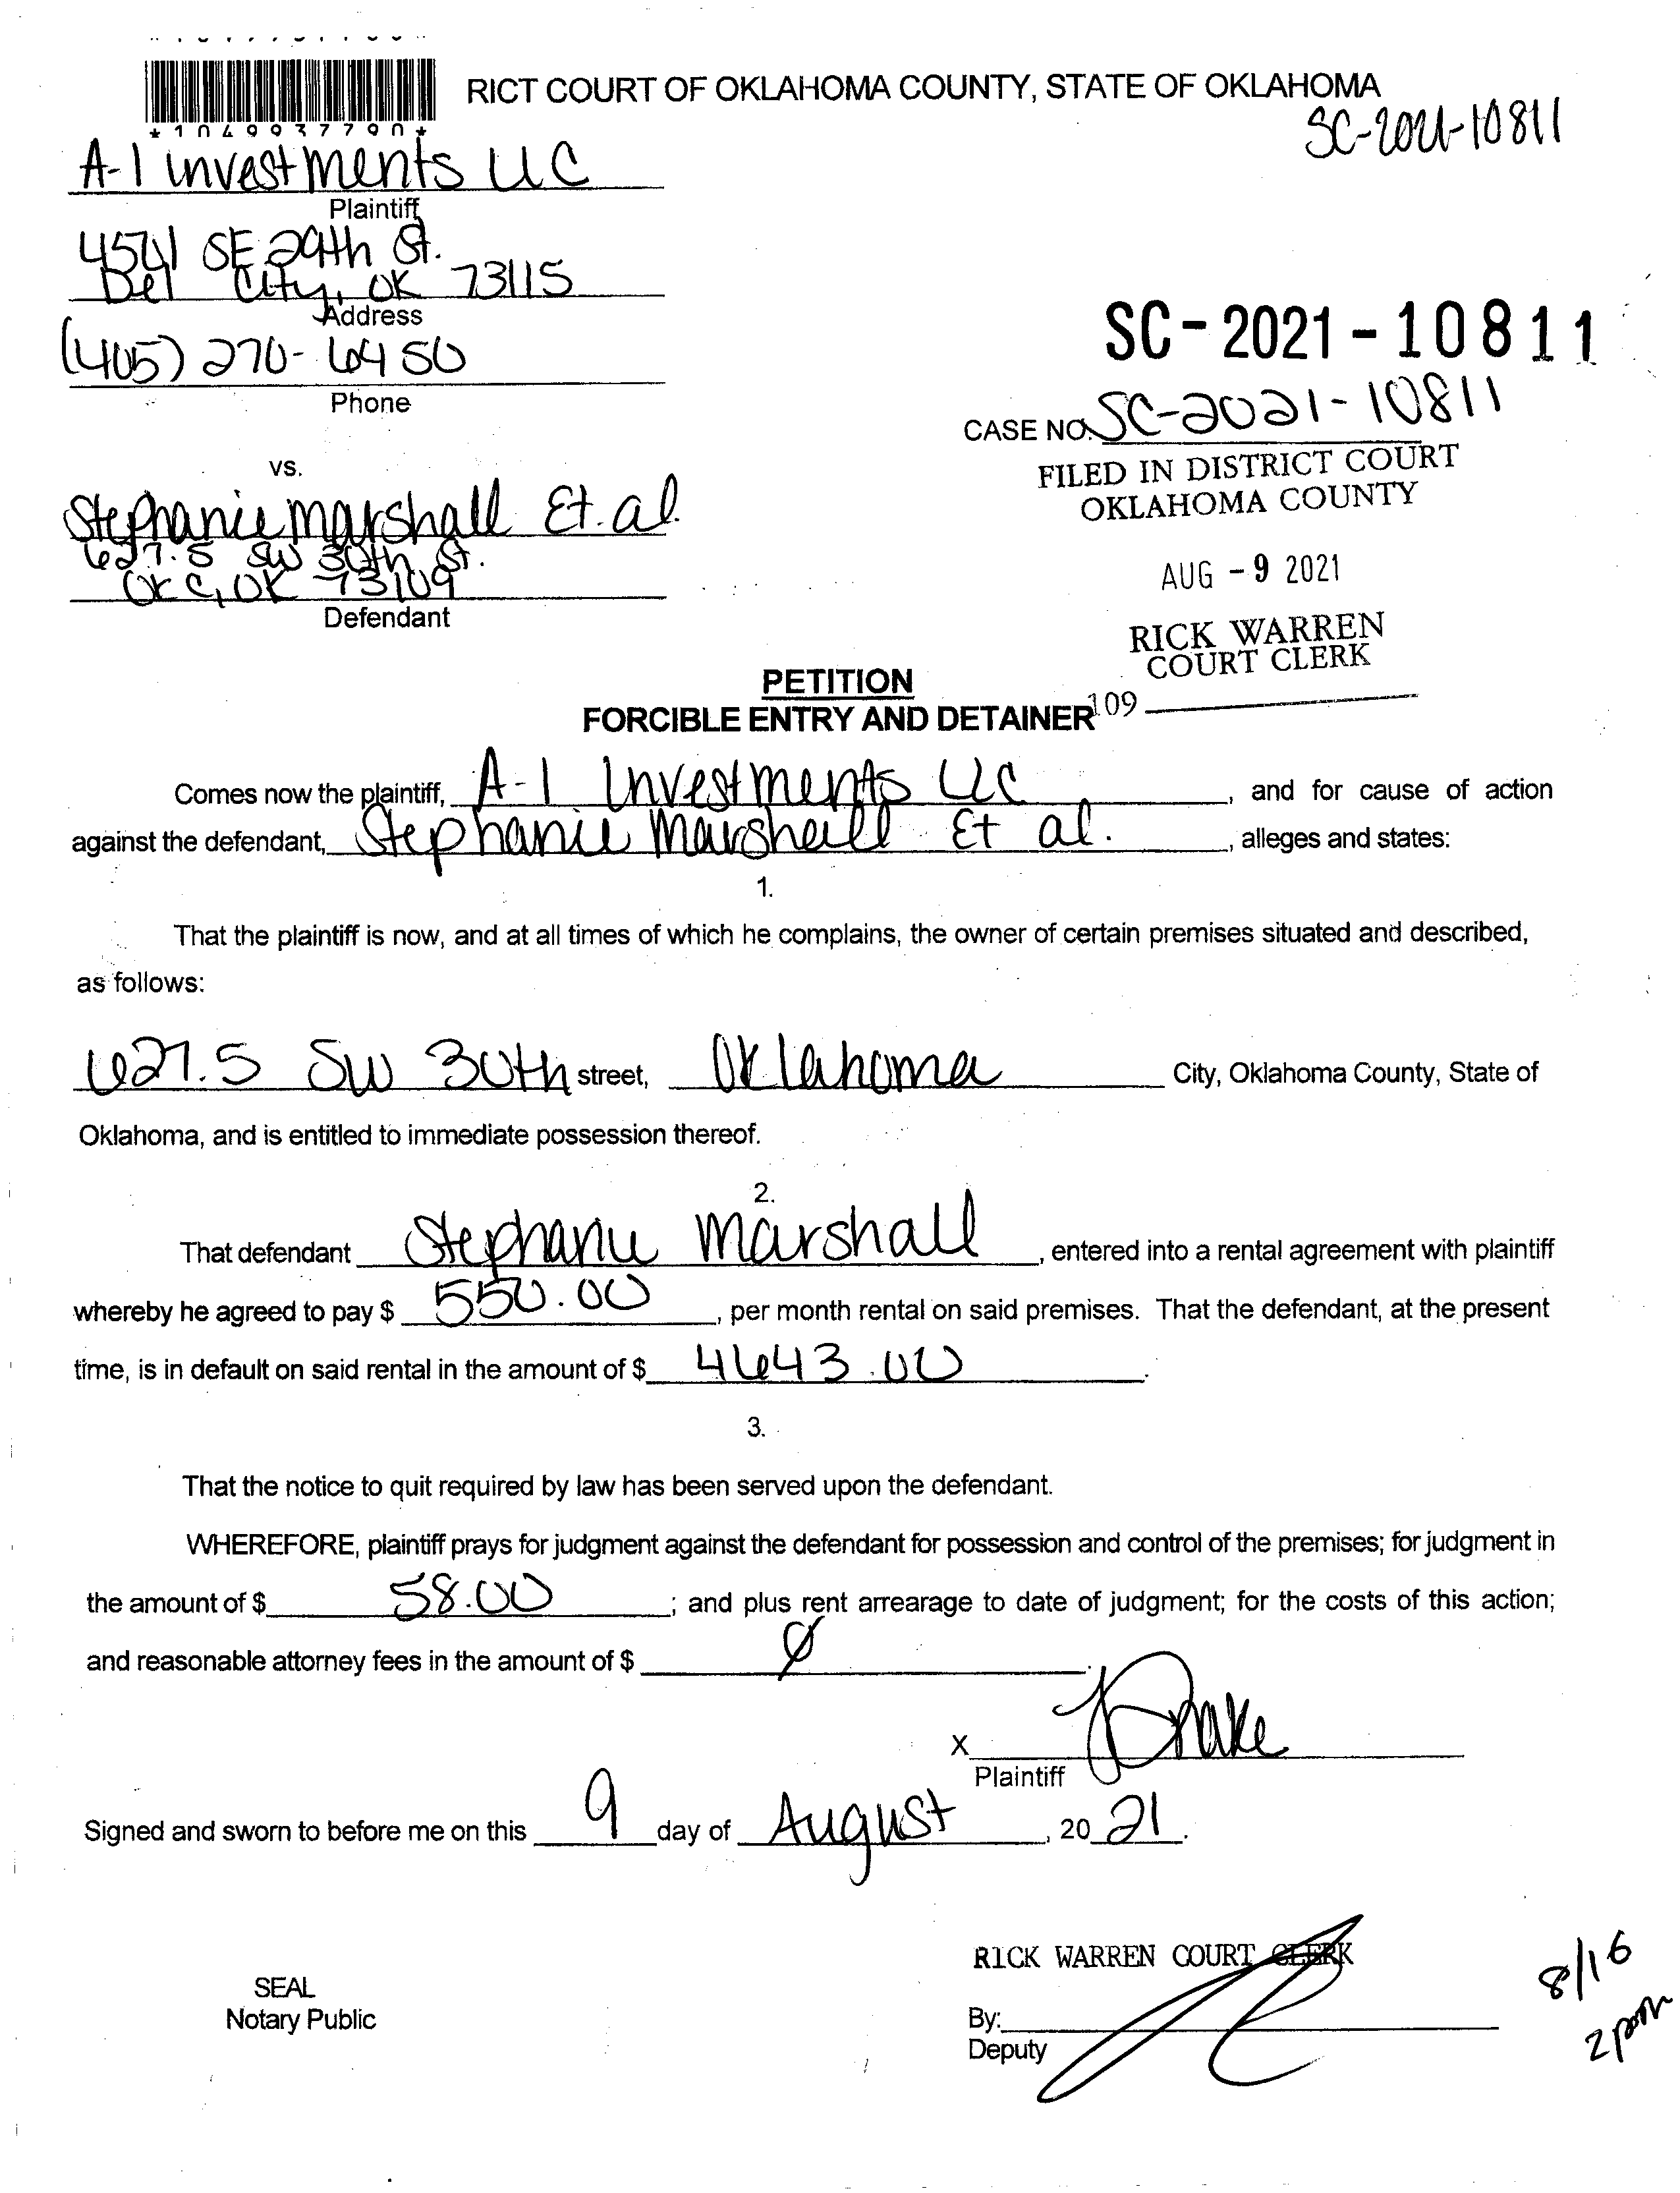 *1049937790*
RICT COURT OF OKLAHOMA COUNTY, STATE OF OKLAHOMA
SC-2021-10811
A-1 Investments LLC
Plaintiff
4501 SE 29th St.
Del City, OK 73115
Address
(405) 270-6450
Phone
SC-2021-10811
CASE NO. SC-2021-10811
FILED IN DISTRICT COURT
OKLAHOMA COUNTY
vs.
Stephanie Marshall Et. al.
627.5 SW 30th St.
OKC, OK 73109
Defendant
AUG -9 2021
RICK WARREN
COURT CLERK
109
PETITION
FORCIBLE ENTRY AND DETAINER
Comes now the plaintiff, A-1 Investments LLC, and for cause of action
against the defendant, Stephanie Marshall Et al., alleges and states:
1.
That the plaintiff is now, and at all times of which he complains, the owner of certain premises situated and described,
as follows:
627.5 SW 30th street, Oklahoma City, Oklahoma County, State of
Oklahoma, and is entitled to immediate possession thereof.
2.
That defendant Stephanie Marshall, entered into a rental agreement with plaintiff
whereby he agreed to pay $ 550.00, per month rental on said premises. That the defendant, at the present
time, is in default on said rental in the amount of $ 4643.00.
3.
That the notice to quit required by law has been served upon the defendant.
WHEREFORE, plaintiff prays for judgment against the defendant for possession and control of the premises; for judgment in
the amount of $ 58.00; and plus rent arrearage to date of judgment; for the costs of this action;
and reasonable attorney fees in the amount of $ Ø.
X Drake
Plaintiff
Signed and sworn to before me on this 9 day of August, 20 21.
RICK WARREN COURT CLERK
SEAL
Notary Public
By:
Deputy
8/16
2pm